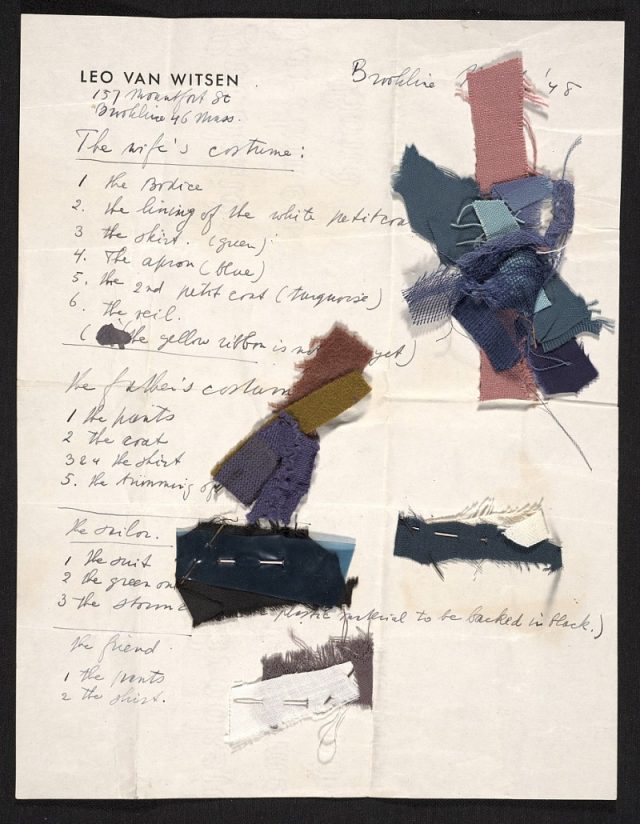 LEO VAN WITSEN
157 Mountfort St
Brookline 46 Mass.
Brookline '48
The wife's costume:
1 the Bodice
2. the lining of the white petitcoa
3 the skirt. (green)
4. The apron (blue)
5. the 2nd petit coat (turquoise)
6. the veil.
( the yellow ribbon is not yet)
the father's costume
1 the pants
2 the coat
3 & 4 the shirt
5. the trimming of
the sailor.
1 the suit
2 the green on
3 the storm plastic material to be backed in black.)
the friend.
1 the pants
2 the shirt.